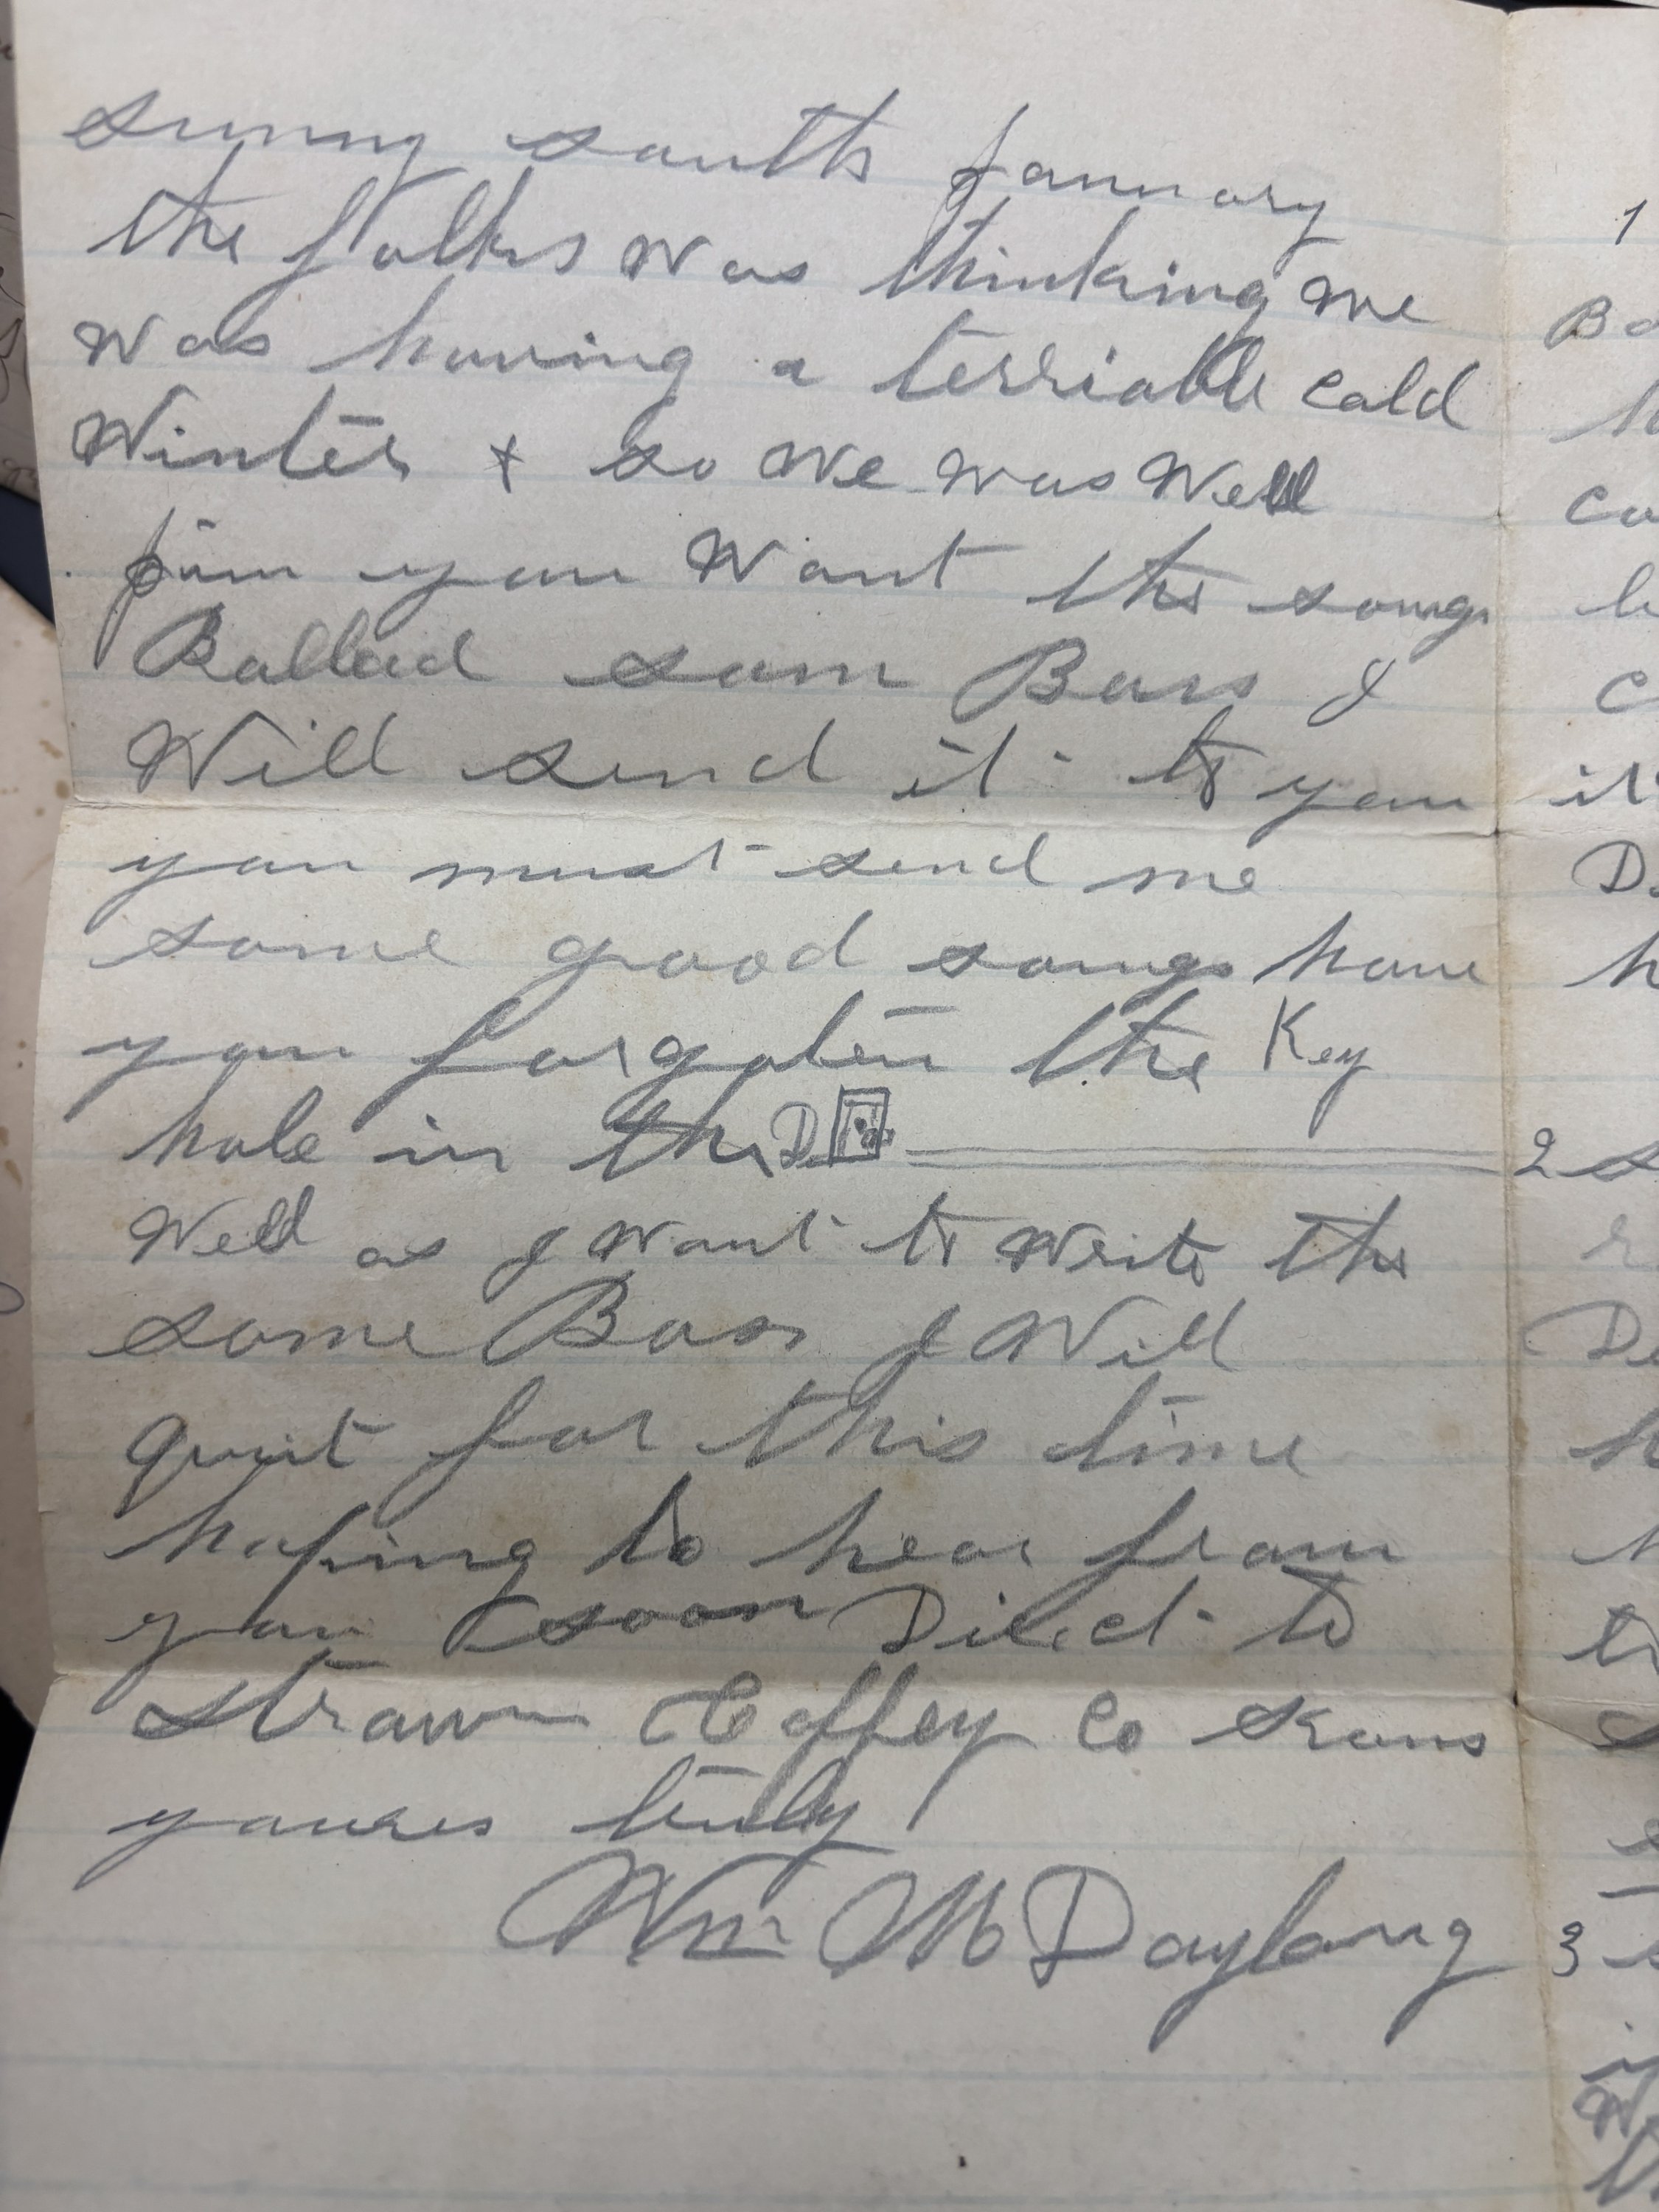 sunny south January
the folks was thinking we
was having a terriable cold
Winter + so we was Well
Jim you Want the song
Ballad sam Bass I
Will send it to you
you must send me
some good songs have
you forgoten the Key
hole in the Door
Well as I want to write the
same Bass I Will
quit for this time
hoping to hear from
you soon Direct to
strawn Coffey Co Kans
youres truly
Wm M Daylong
1
Bo
h
co
le
c
it
D
h
2 s
r
De
h
to
s
3 s
i
W